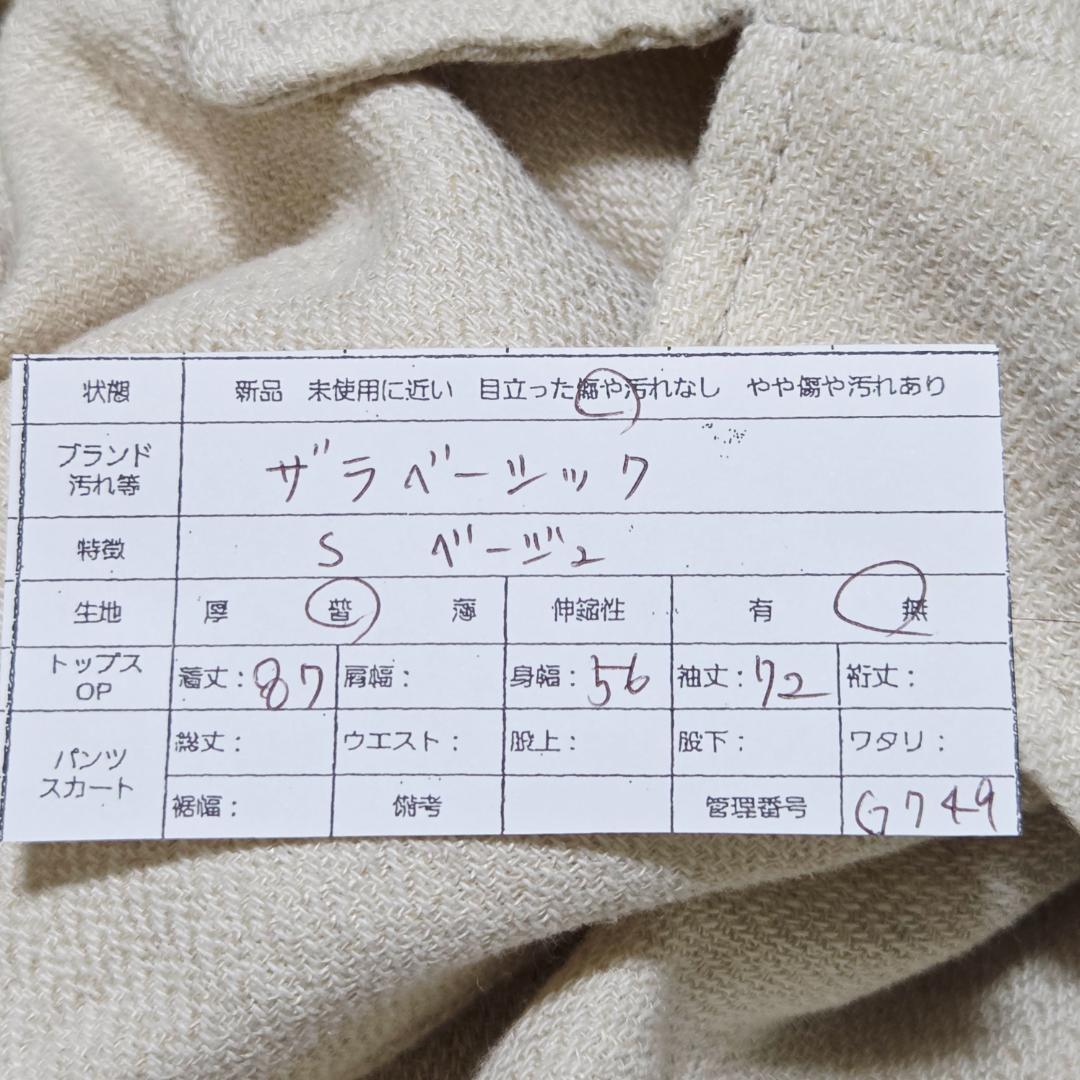 状態 新品 未使用に近い 目立った傷や汚れなし やや傷や汚れあり
ブランド
汚れ等 ザラベーシック
特徴 S ベージュ
生地 厚 普 薄 伸縮性 有 無
トップス
OP 着丈：87 肩幅： 身幅：56 袖丈：72 裄丈：
パンツ
スカート 総丈： ウエスト： 股上： 股下： ワタリ：
裾幅： 備考 管理番号 G749